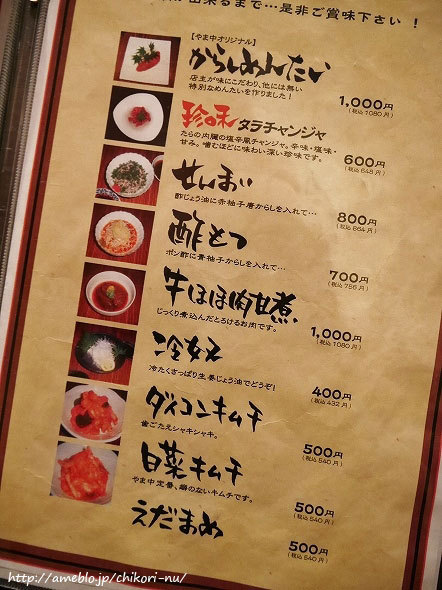 出来るまで…是非ご賞味下さい！
【やま中オリジナル】
からしめんたい
店主が味にこだわり、他には無い
特別なめんたいを作りました！
1,000円
(税込 1080円)
珍味 タラチャンジャ
たらの内臓の塩辛風チャンジャ。辛味・塩味・
甘み。噛むほどに味わい深い珍味です。
600円
(税込 648円)
せんまい
酢じょう油に赤柚子唐からしを入れて…
800円
(税込 864円)
酢もつ
ポン酢に青柚子からしを入れて…
700円
(税込 756円)
牛ほほ肉甘煮
じっくり煮込んだとろけるお肉です。
1,000円
(税込 1080円)
冷奴
冷たくさっぱり生姜じょう油でどうぞ！
400円
(税込 432円)
ダイコンキムチ
歯ごたえシャキシャキ。
500円
(税込 540円)
白菜キムチ
やま中定番、癖のないキムチです。
500円
(税込 540円)
えだまめ
500円
(税込 540円)
http://ameblo.jp/chikori-nu/